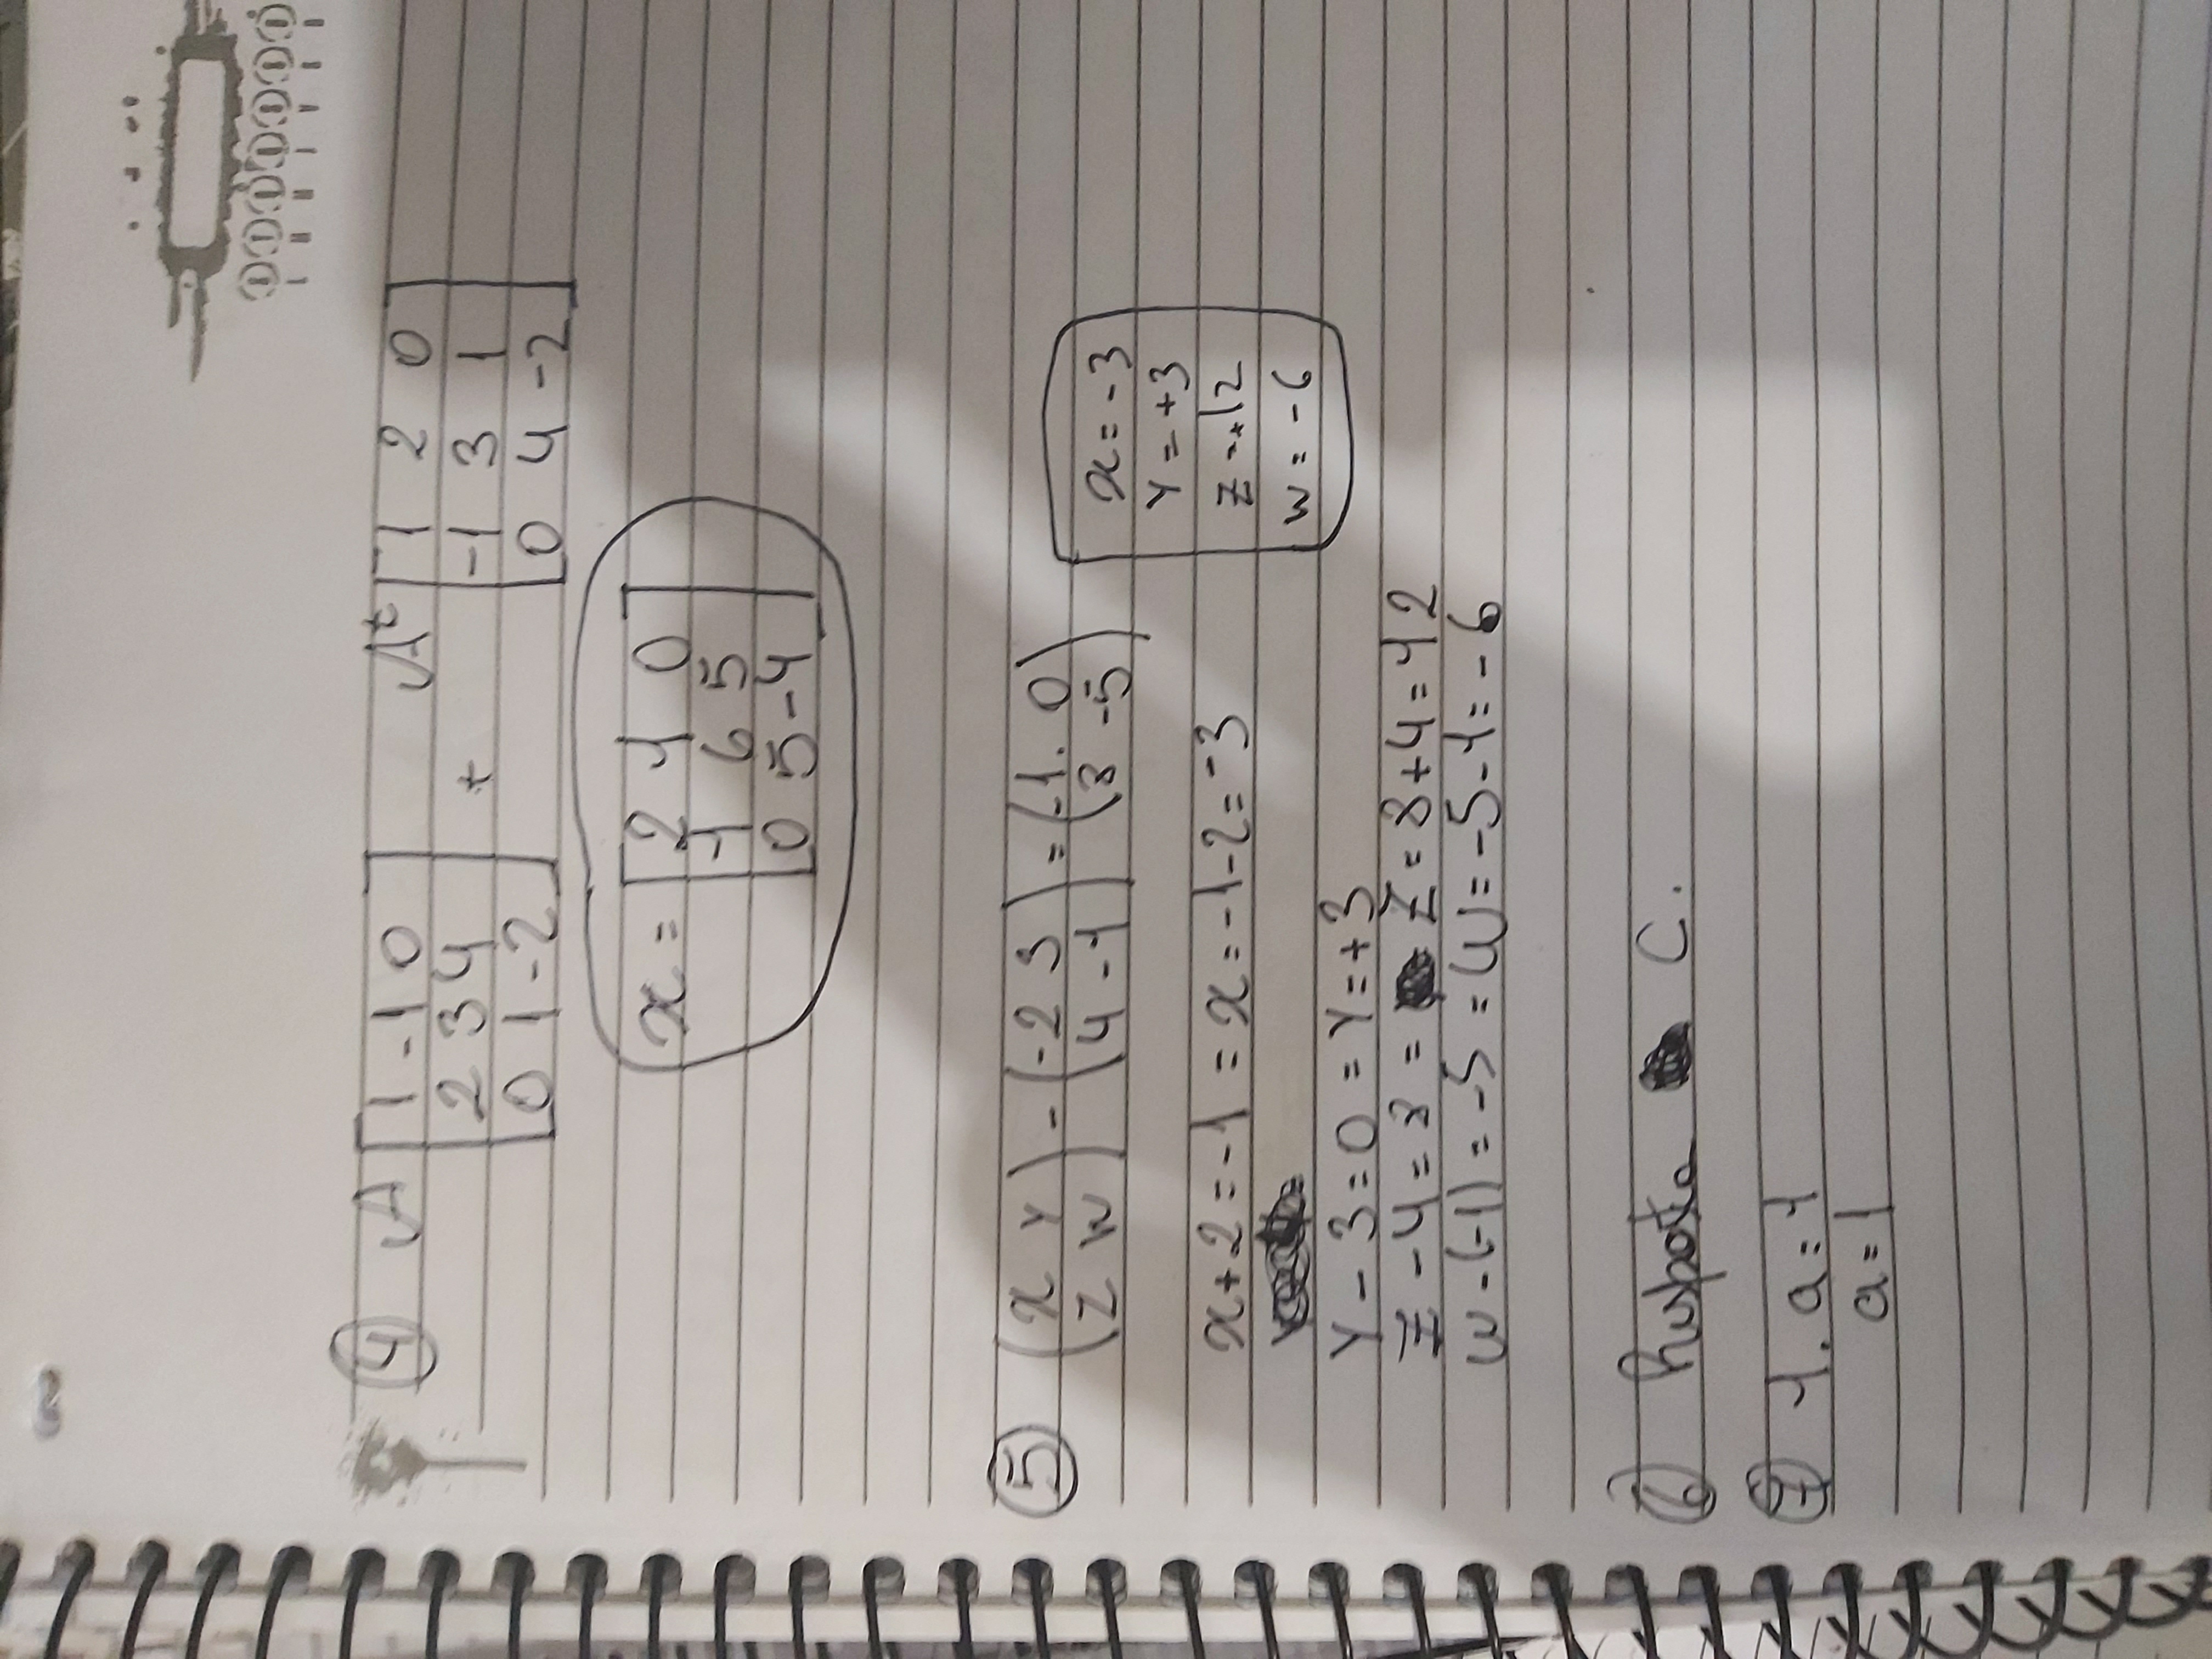 4 A [1 -1 0] + Aᵗ [1 2 0]
[2 3 4] [-1 3 1]
[0 1 -2] [0 4 -2]
x = [2 1 0]
[1 6 5]
[0 5 -4]
5 (x Y) - (-2 3) = (-1. 0)
(Z W) (4 -1) (8 -5)
x = -3
Y = +3
Z = +12
W = -6
x + 2 = -1 = x = -1 - 2 = -3
Y - 3 = 0 = Y = +3
Z - 4 = 8 = Z = 8 + 4 = 12
W - (-1) = -5 = W = -5 - 1 = -6
6 Resposta C.
7 1. a = 1
a = 1